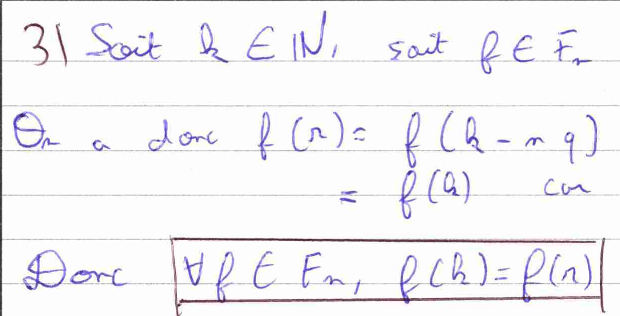 3| Soit k ∈ ℕ, soit f ∈ Fn
On a donc f(r) = f(k - nq)
= f(k) car
Donc ∀f ∈ Fn, f(k) = f(r)